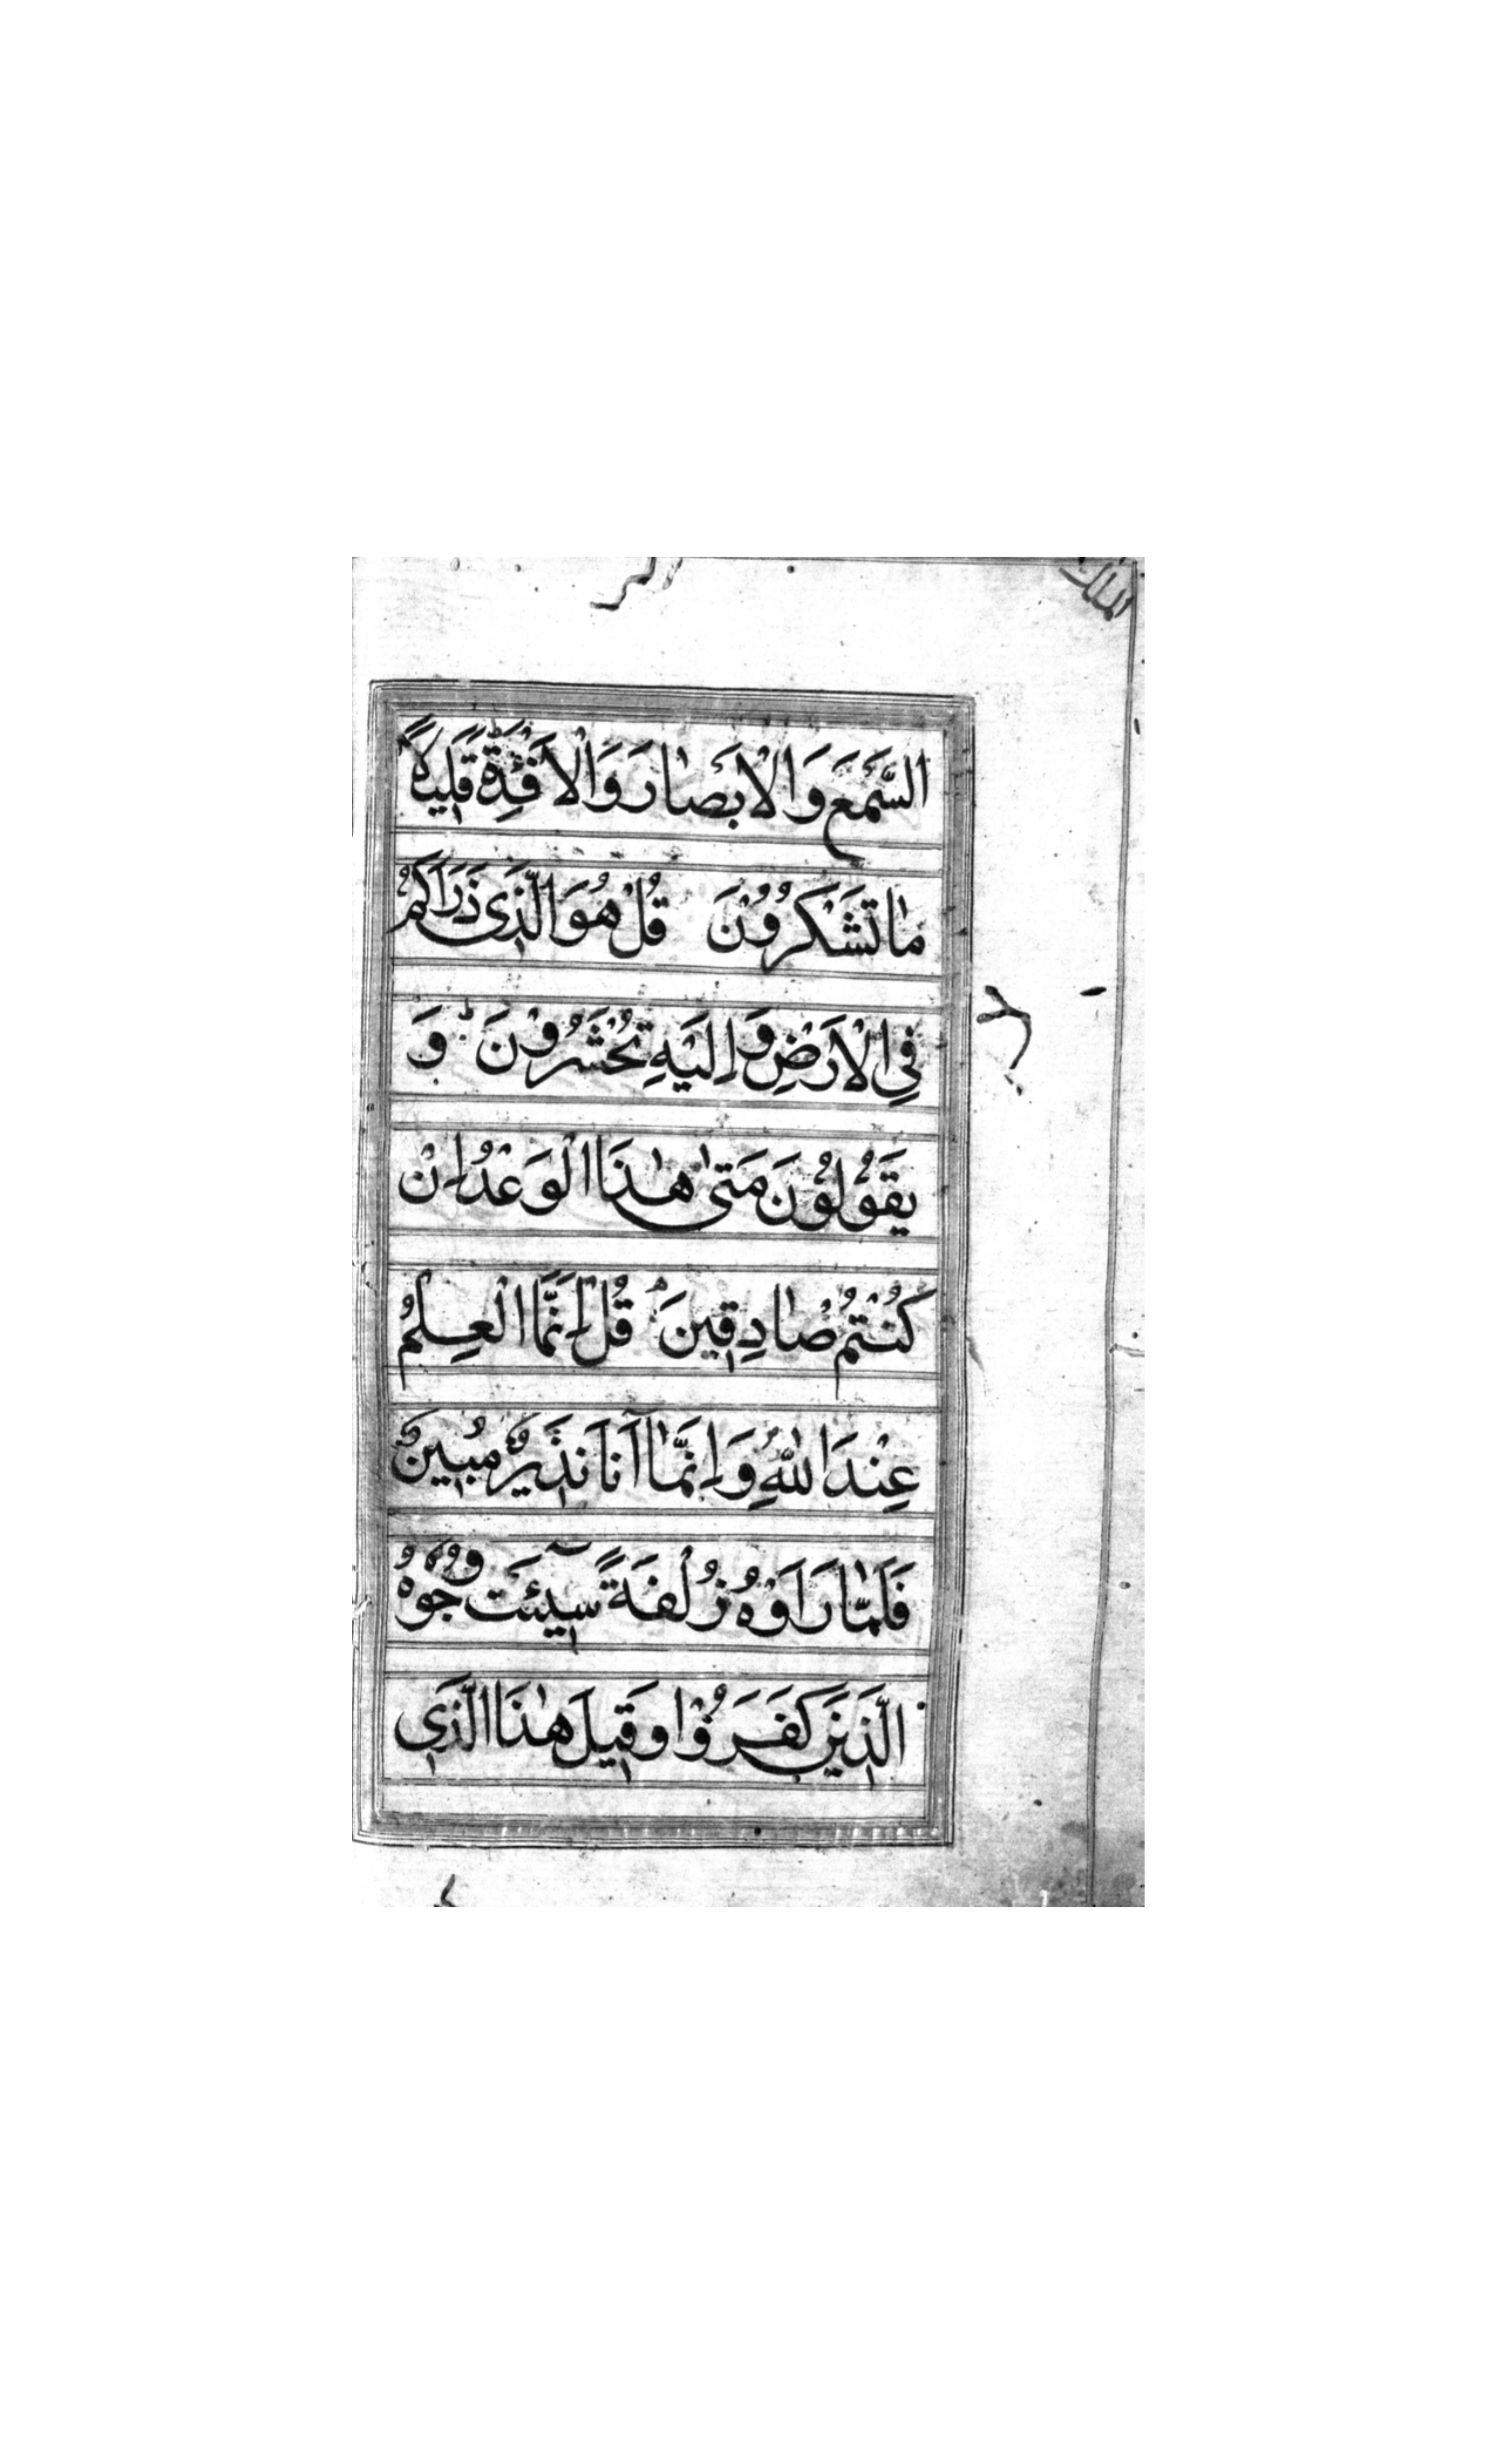 الملك
السَّمْعَ وَالْاَبْصٰارَ وَالْاَفْئِدَةَ قَلِيلاً
مٰا تَشْكُرُوُنَ قُلْ هُوَ الَّذِى ذَرَاَكُمْ
فِى الْاَرْضِ وَاِلَيْهِ تُحْشَرُوْنَ وَ
يَقُوْلُوْنَ مَتىٰ هٰذَا الْوَعْدُ اِنْ
كُنْتُمْ صٰادِقِينَ قُلْ اِنَّمَا الْعِلْمُ
عِنْدَ اللّٰهِ وَاِنَّمٰا اَنَا نَذِيرٌ مُبِينٌ
فَلَمّٰا رَاَوْهُ زُلْفَةً سِيٓئَتْ وُجُوْهُ
الَّذِينَ كَفَرُوْا وَقِيلَ هٰذَا الَّذِى